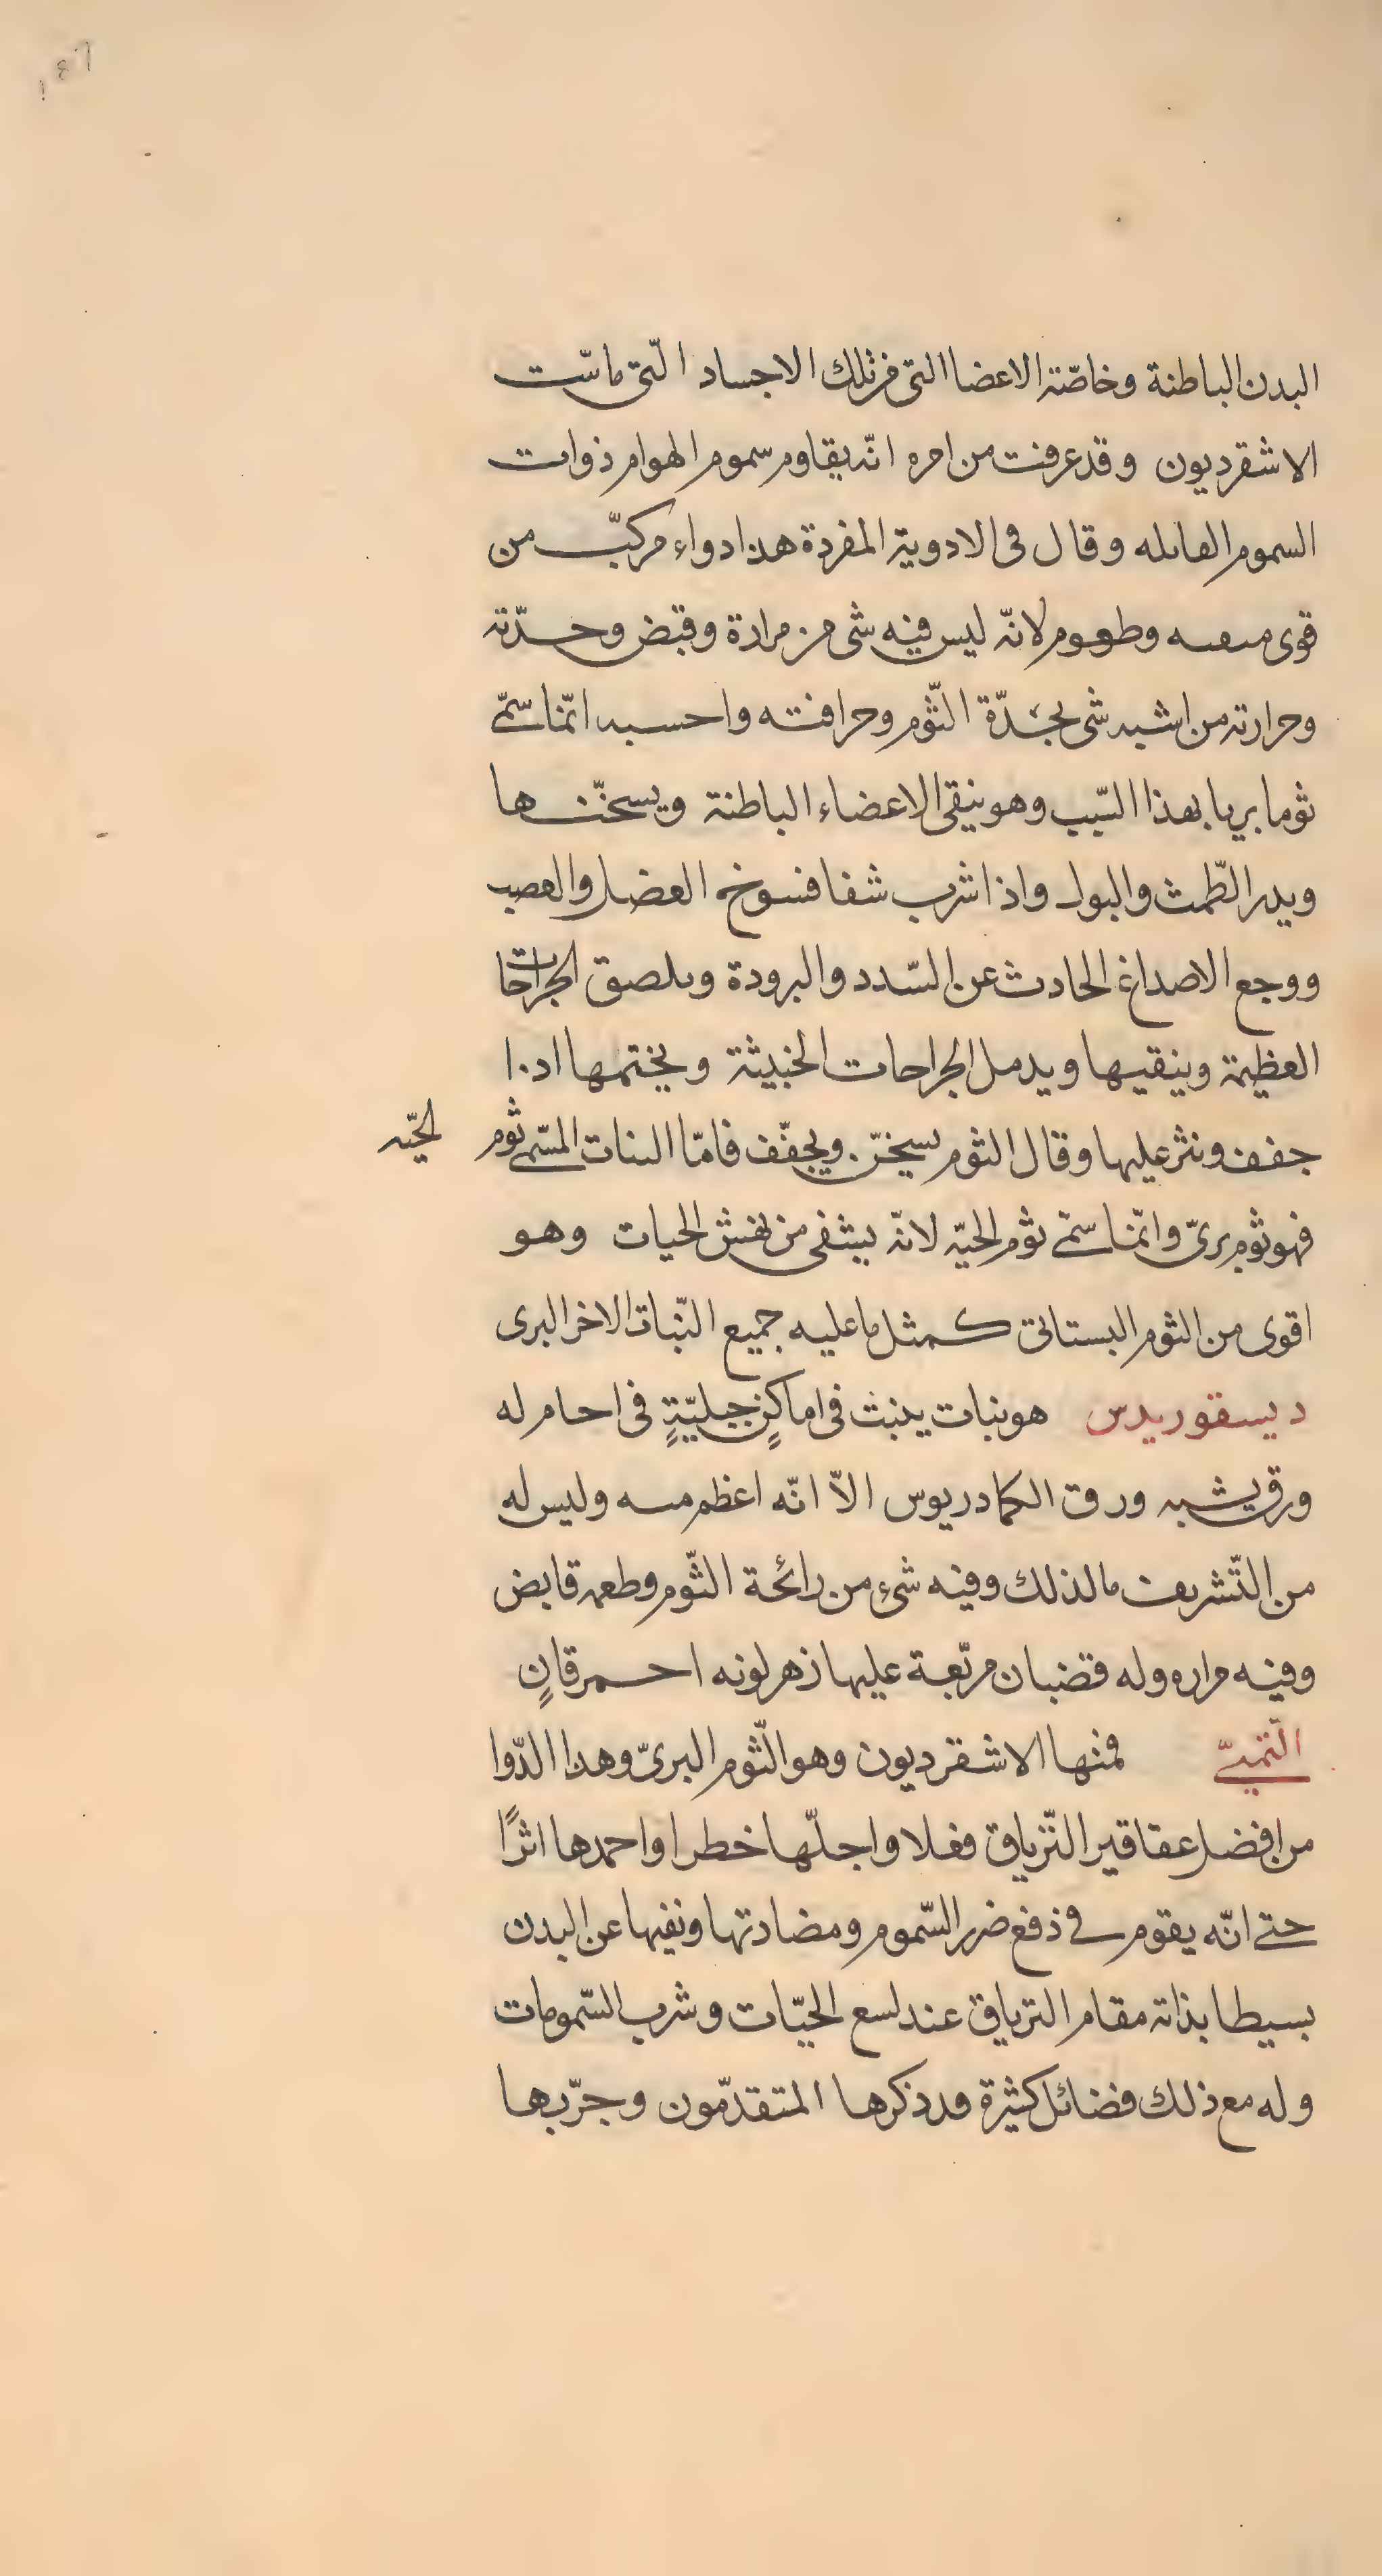 ١٤٦
البدن الباطنة وخاصّة الاعضا التى من تلك الاجساد الّتى ماسّت
الاشقرديون وقد عرفت من امره انّه يقاوم سموم الهوام ذوات
السموم القاتله وقال فى الادوية المفردة هذا دواء مركبّ من
قوى وطعوم لانّه ليس فيه شى من مرارة وقبض وحدّة
وحرارته من اشبه شى بحدّة الثّوم وحرافته واحسبه انّما سمّى
ثوما بريا بهذا السّبب وهو ينقى الاعضاء الباطنة ويسخّنها
ويدر الطّمث والبول واذا شرب شفا فسوخ العضل والعصب
ووجع الاصداغ الحادث عن السّدد والبرودة ويلصق الجراحات
العظيمة وينقيها ويدمل الجراحات الخبيثة ويختمها اذا
جفف ونثر عليها وقال الثوم يسخّن ويجفّف فامّا النبات المسّمى ثوم الحيّه
فهو ثوم برىّ وانّما سمّى ثوم الحيّه لانّه يشفى من نهش الحيات وهو
اقوى من الثوم البستانى كمثل ما عليه جميع النّبات الاخر البرى
ديسقوريدس هو نبات ينبت فى اماكنٍ جبليّةٍ فى احام له
ورق يشبه ورق الكمادريوس الاّ انّه اعظم منه وليس له
من التّشريف ما لذلك وفيه شىء من رائحة الثّوم وطعمه قابض
وفيه مراره وله قضبان مربّعة عليها زهر لونه احمر قانٍ
التّميمىّ فمنها الاشقرديون وهو الثّوم البرىّ وهذا الدّوا
من افضل عقاقير التّرياق فعلا واجلّها خطرا واحمدها اثرًا
حتى انّه يقوم فى دفع ضرر السّموم ومضادتها ونفيها عن البدن
بسيطا بذاته مقام الترياق عند لسع الحيّات وشرب السّمومات
وله مع ذلك فضائل كثيرة قد ذكرها المتقدّمون وجرّبها